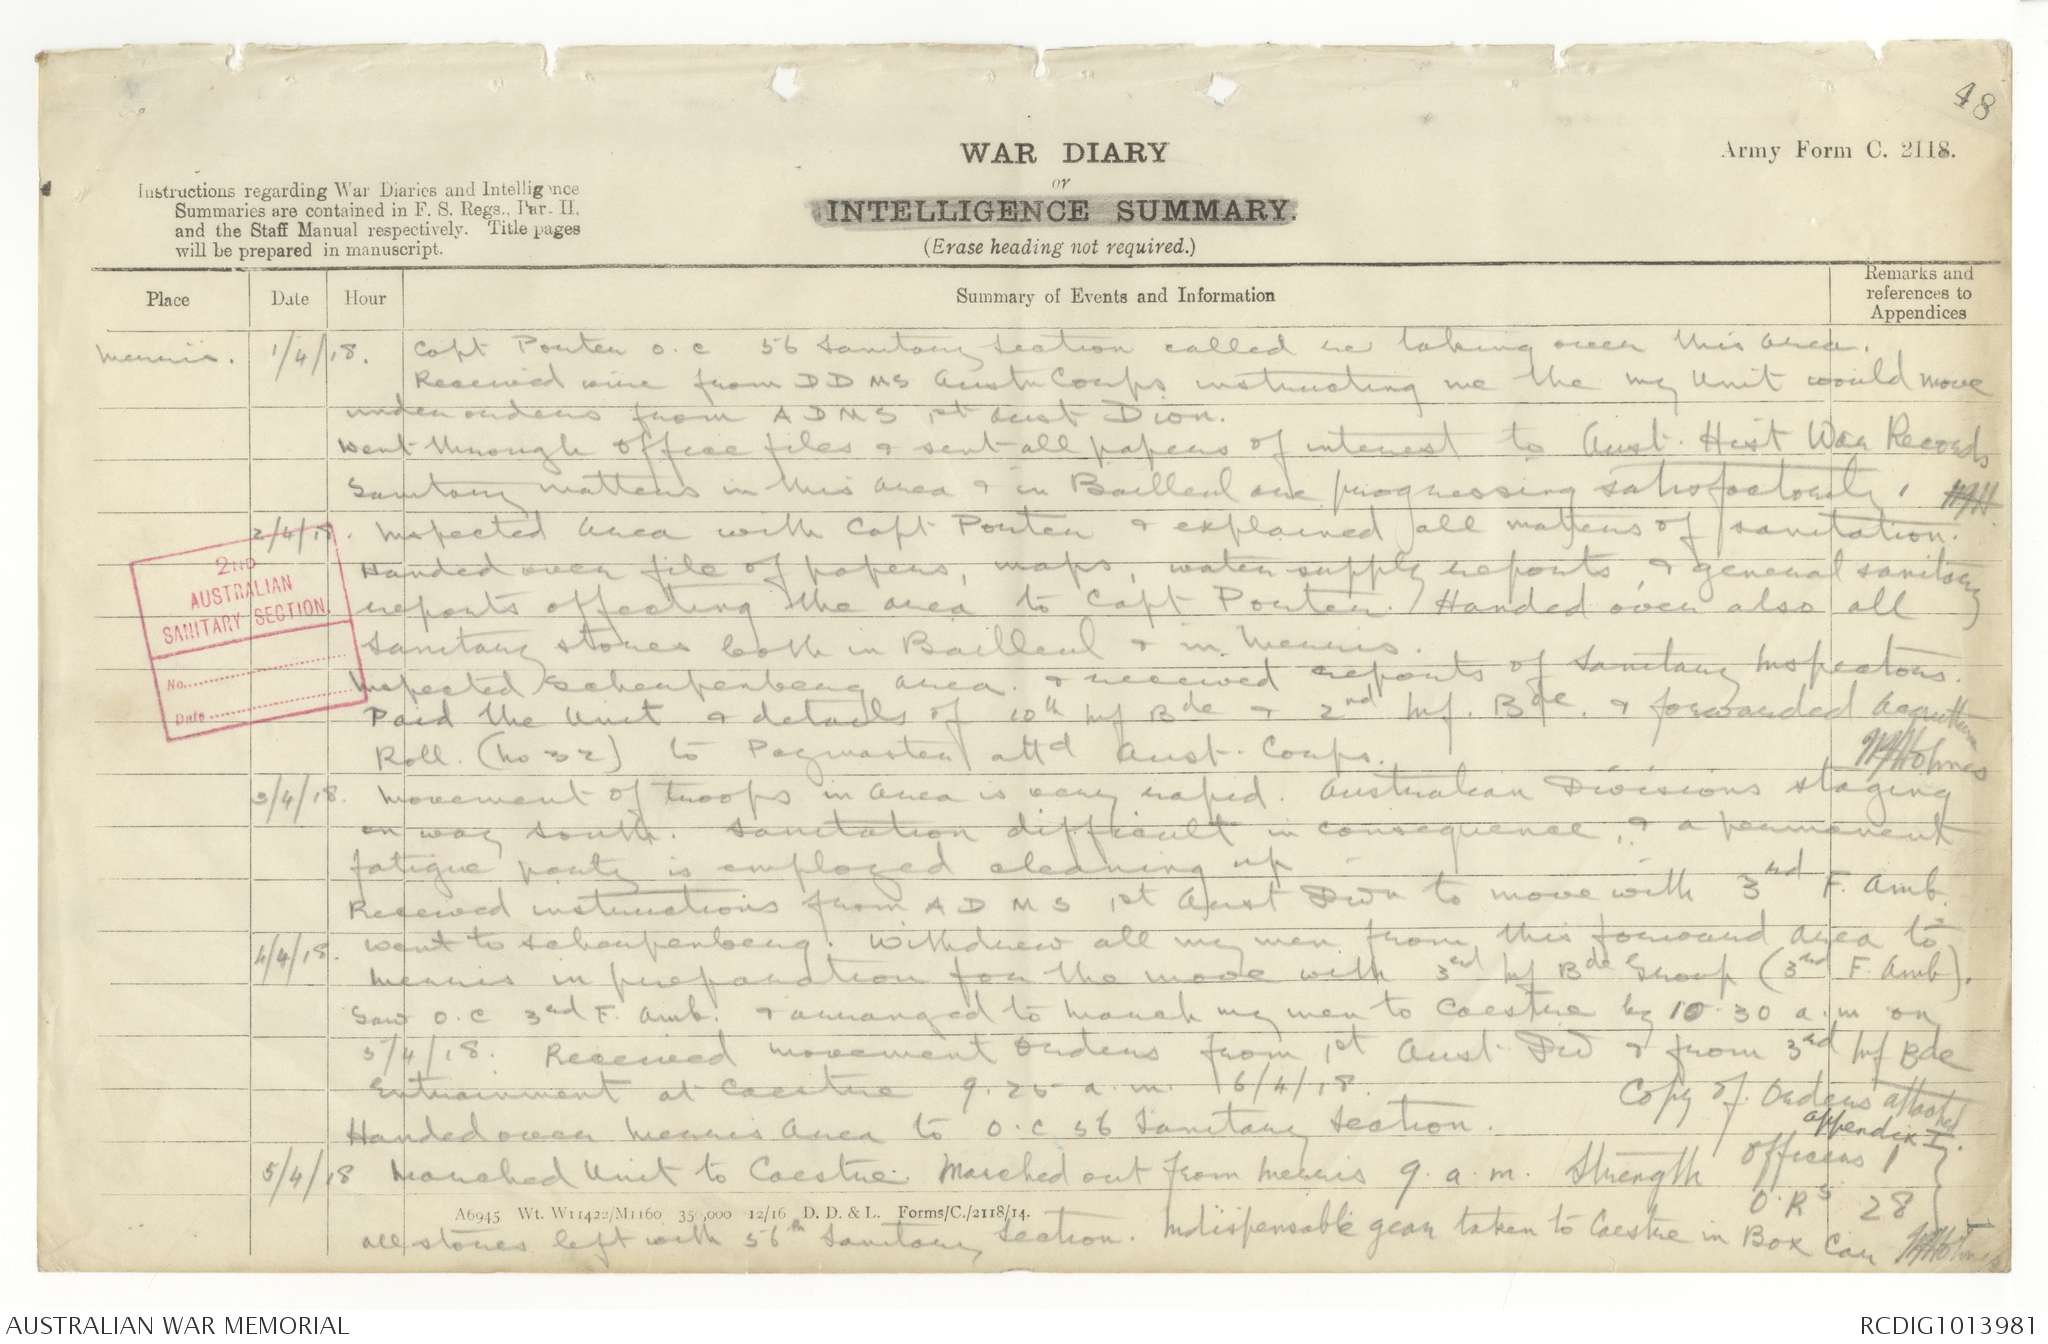 48
WAR DIARY
or
INTELLIGENCE SUMMARY.
(Erase heading not required.)
Army Form C. 2118.
Instructions regarding War Diaries and Intelligence
Summaries are contained in F. S. Regs., Par. II.
and the Staff Manual respectively. Title pages
will be prepared in manuscript.
Place Date Hour Summary of Events and Information Remarks and references to Appendices
Merris. 1/4/18. Capt Porter O.C 56 Sanitary Section called re taking over this area.
Received wire from DDMS Austn Corps instructing me the my Unit would move
under orders from ADMS 1st Aust Dion.
Went through office files & sent all papers of interest to Aust. Hist War Records
Sanitary matters in this area & in Bailleul are progressing satisfactorily.
2/4/18. Inspected area with Capt Porter & explained all matters of sanitation.
Handed over file of papers, maps, water supply reports, & general sanitary
reports affecting the area to Capt Porter. Handed over also all
sanitary stores both in Bailleul & in Merris.
Inspected Scherpenberg area. & received reports of Sanitary Inspectors.
Paid the Unit & details of 10th Inf Bde & 2nd Inf. Bde. & forwarded Acquittance
Roll. (No 32) to Paymaster attd Aust. Corps. Holmes
3/4/18. Movement of troops in area is very rapid. Australian Divisions staging
on way south. Sanitation difficult in consequence, & a permanent
fatigue party is employed cleaning up
Received instructions from ADMS 1st Aust Divn to move with 3rd F. Amb.
4/4/18. Went to Scherpenberg. Withdrew all my men from this forward area to
Merris in preparation for the move with 3rd Inf Bde Group (3rd F. Amb).
Saw O.C 3rd F. Amb. & arranged to march my men to Caestre by 10.30 a.m on
5/4/18. Received movement Orders from 1st Aust Div & from 3rd Inf Bde
Entrainment at Caestre 9.25 a.m. 6/4/18. Copy of Orders attached
appendix I.
Handed over Merris Area to O.C 56 Sanitary Section.
5/4/18 Marched Unit to Caestre. Marched out from Merris 9. a.m. Strength Officers 1
O.Rs 28
All stores left with 56th Sanitary Section. Indispensable gear taken to Caestre in Box Car Holmes
A6945 Wt. W11422/M1160 350,000 12/16 D. D. & L. Forms/C./2118/14.
2ND
AUSTRALIAN
SANITARY SECTION
No.
Date
AUSTRALIAN WAR MEMORIAL
RCDIG1013981